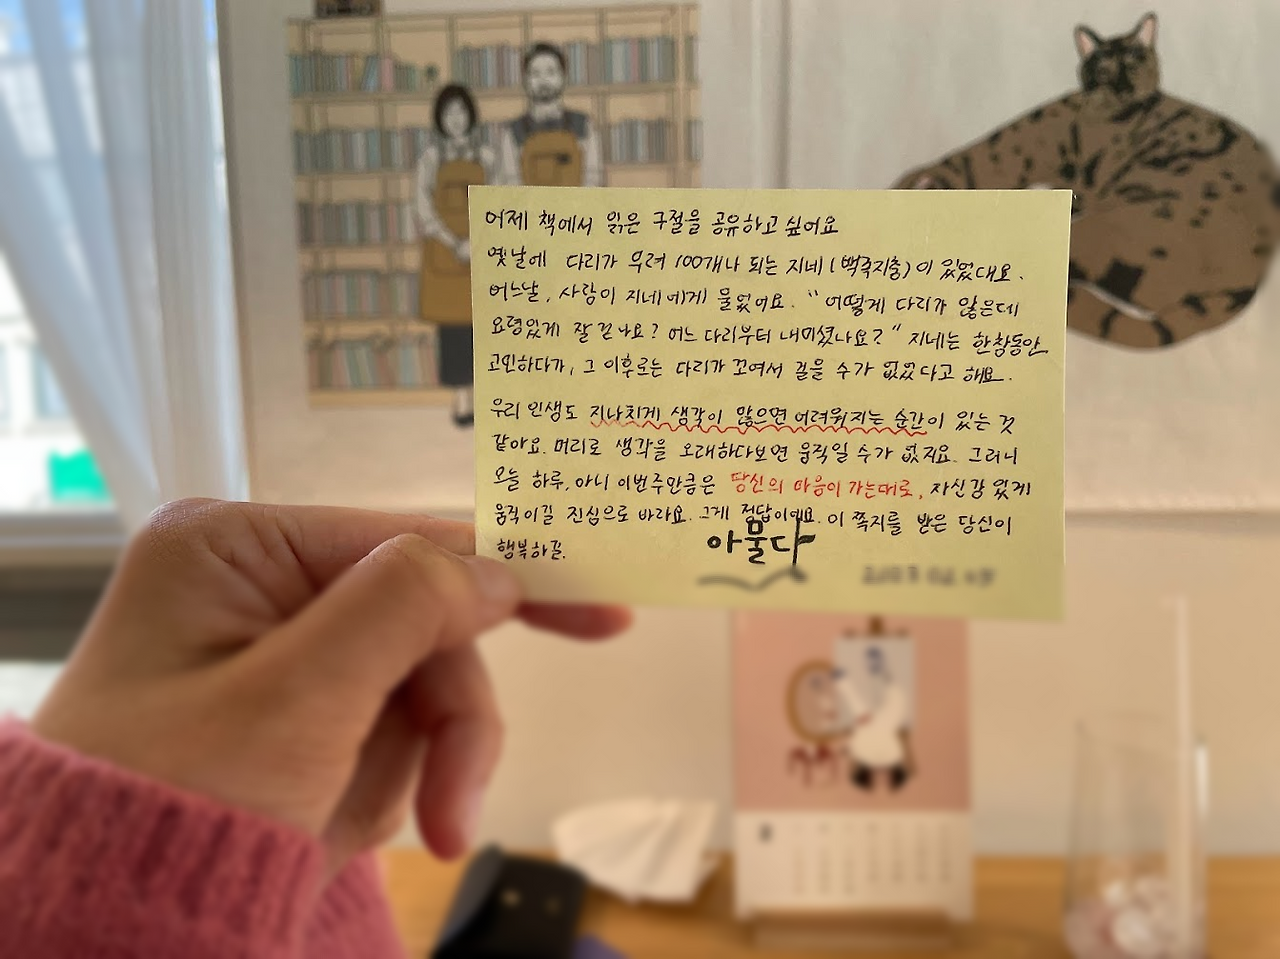 어제 책에서 읽은 구절을 공유하고 싶어요
옛날에 다리가 무려 100개나 되는 지네(백족지충)이 있었대요.
어느날, 사람이 지네에게 물었어요. "어떻게 다리가 많은데
요령있게 잘 걷나요? 어느 다리부터 내미셨나요?" 지네는 한참동안
고민하다가, 그 이후로는 다리가 꼬여서 걸을 수가 없었다고 해요.
우리 인생도 지나치게 생각이 많으면 어려워지는 순간이 있는 것
같아요. 머리로 생각을 오래하다보면 움직일 수가 없지요. 그러니
오늘 하루, 아니 이번주만큼은 당신의 마음이 가는대로, 자신감 있게
움직이길 진심으로 바라요. 그게 정답이에요. 이 쪽지를 받은 당신이
행복하길.
아물다